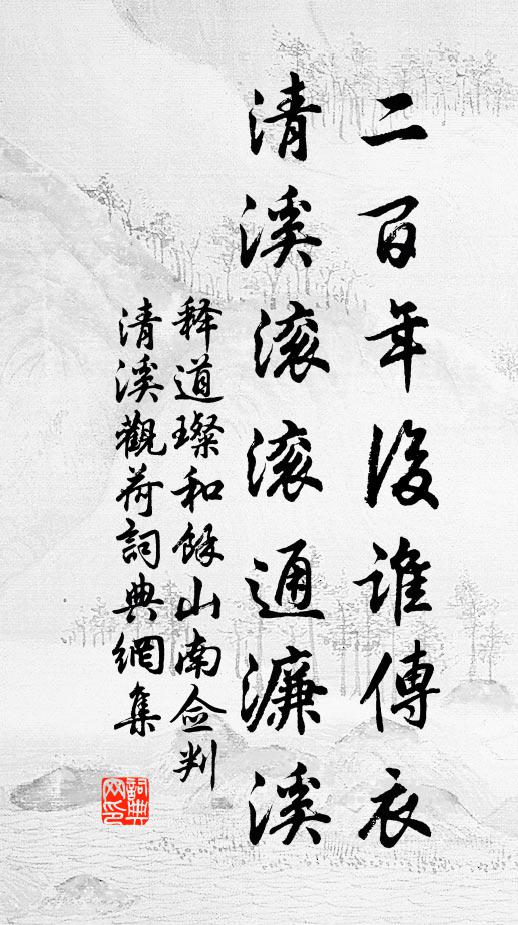 二百年後誰傳衣
清溪滚滚通濂溪
释道璨和餘山南佥判
清溪觀荷詞典網集
詞典
网印